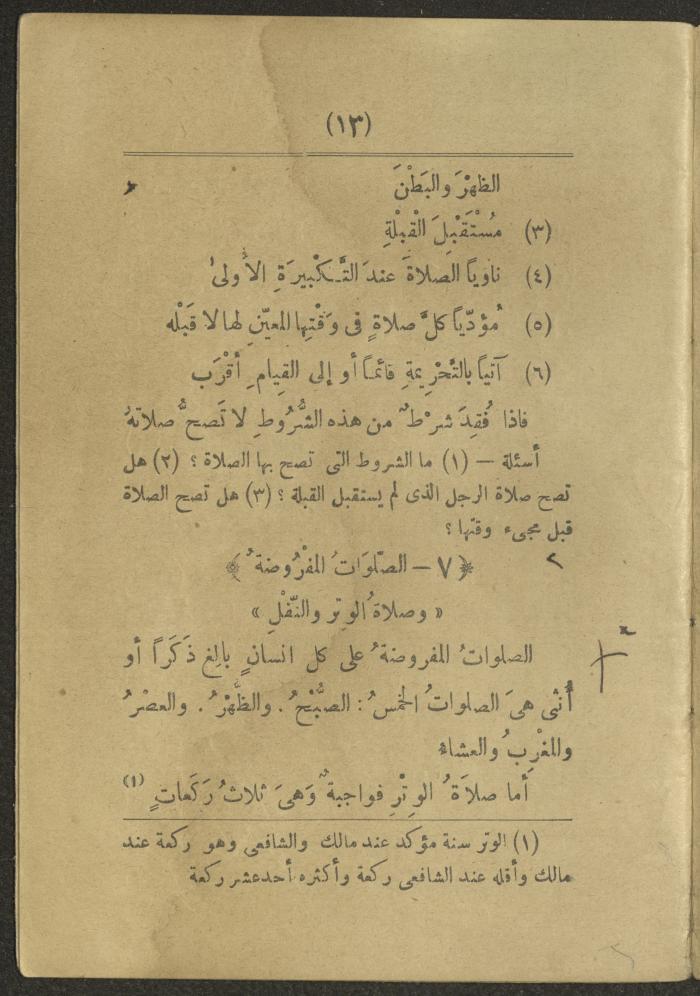 (١٣)
الظهْرَ والبَطْنَ
(٣) مُسْتَقْبِلَ الْقِبْلَةِ
(٤) ناوياً الصلاةَ عندَ التَّكْبيرَةِ الأُولىٰ
(٥) مُؤدّياً كلَّ صلاةٍ فى وَقْتِها المعيّنِ لها لا قَبْلَه
(٦) آتياً بالتَّحْرِيمَةِ قائماً أو إلى القِيامِ أَقْرَب
فاذا فُقِدَ شرْطٌ من هذه الشُّرُوطِ لا تَصحُّ صلاتهُ
أسئلة — (١) ما الشروط التى تصح بها الصلاة ؟ (٢) هل
تصح صلاة الرجل الذى لم يستقبل القبلة ؟ (٣) هل تصح الصلاة
قبل مجىء وقتها ؟
﴿ ٧ — الصّلوَاتُ المفْرُوضةُ ﴾
« وصلاةُ الوِترِ والنّفْلِ »
الصلواتُ المفروضةُ على كل انسانٍ بالِغٍ ذَكَراً أو
أُنثى هىَ الصلواتُ الخمْسُ : الصُّبْحُ . والظُّهْرُ . والعصْرُ
والمغْرِبُ والعشاءُ
أما صلاَةُ الوِتْرِ فواجبةٌ وَهىَ ثلاثُ رَكَعاتٍ (١)
(١) الوتر سنة مؤكد عند مالك والشافعى وهو ركعة عند
مالك وأقله عند الشافعى ركعة وأكثره أحد عشر ركعة